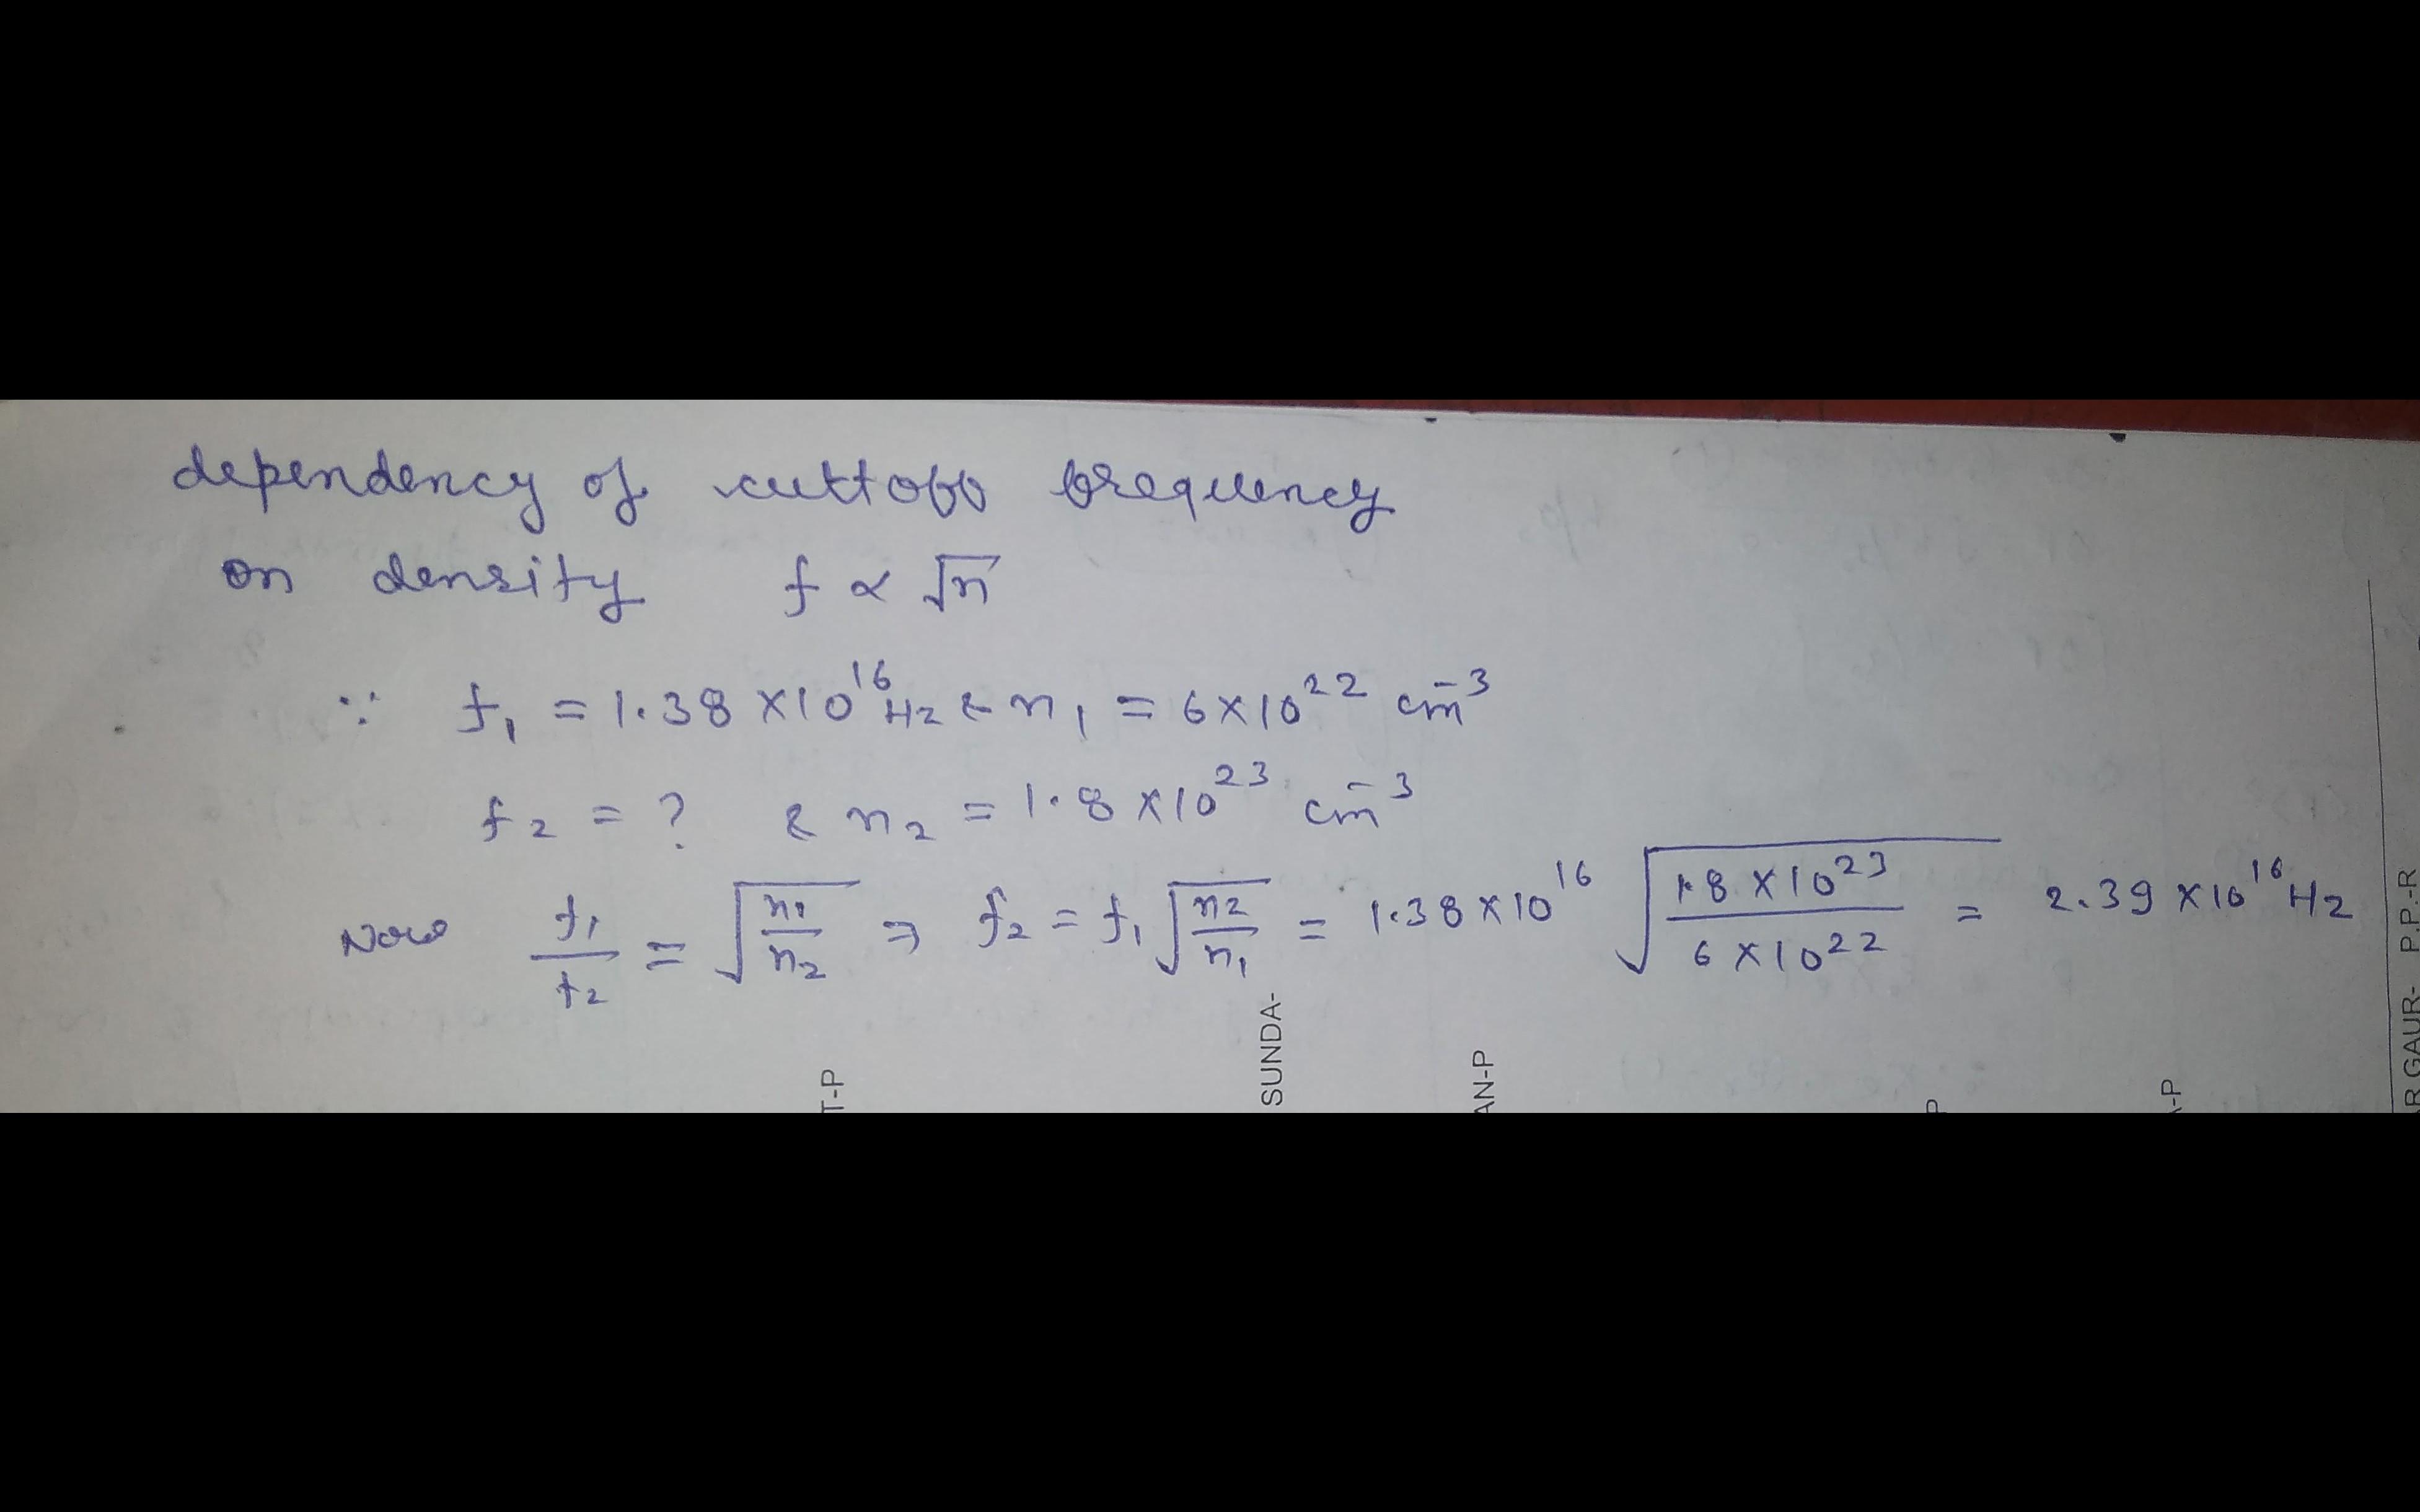 dependency of cuttoff frequency
on density f ∝ √n
∵ f₁ = 1.38 × 10¹⁶ Hz & n₁ = 6 × 10²² cm⁻³
f₂ = ? & n₂ = 1.8 × 10²³ cm⁻³
Now f₁/f₂ = √(n₁/n₂) ⇒ f₂ = f₁ √(n₂/n₁) = 1.38 × 10¹⁶ √(1.8 × 10²³ / 6 × 10²²) = 2.39 × 10¹⁶ Hz
T-P
SUNDA-
AN-P
P
-P
R GAUR- P.P.-R